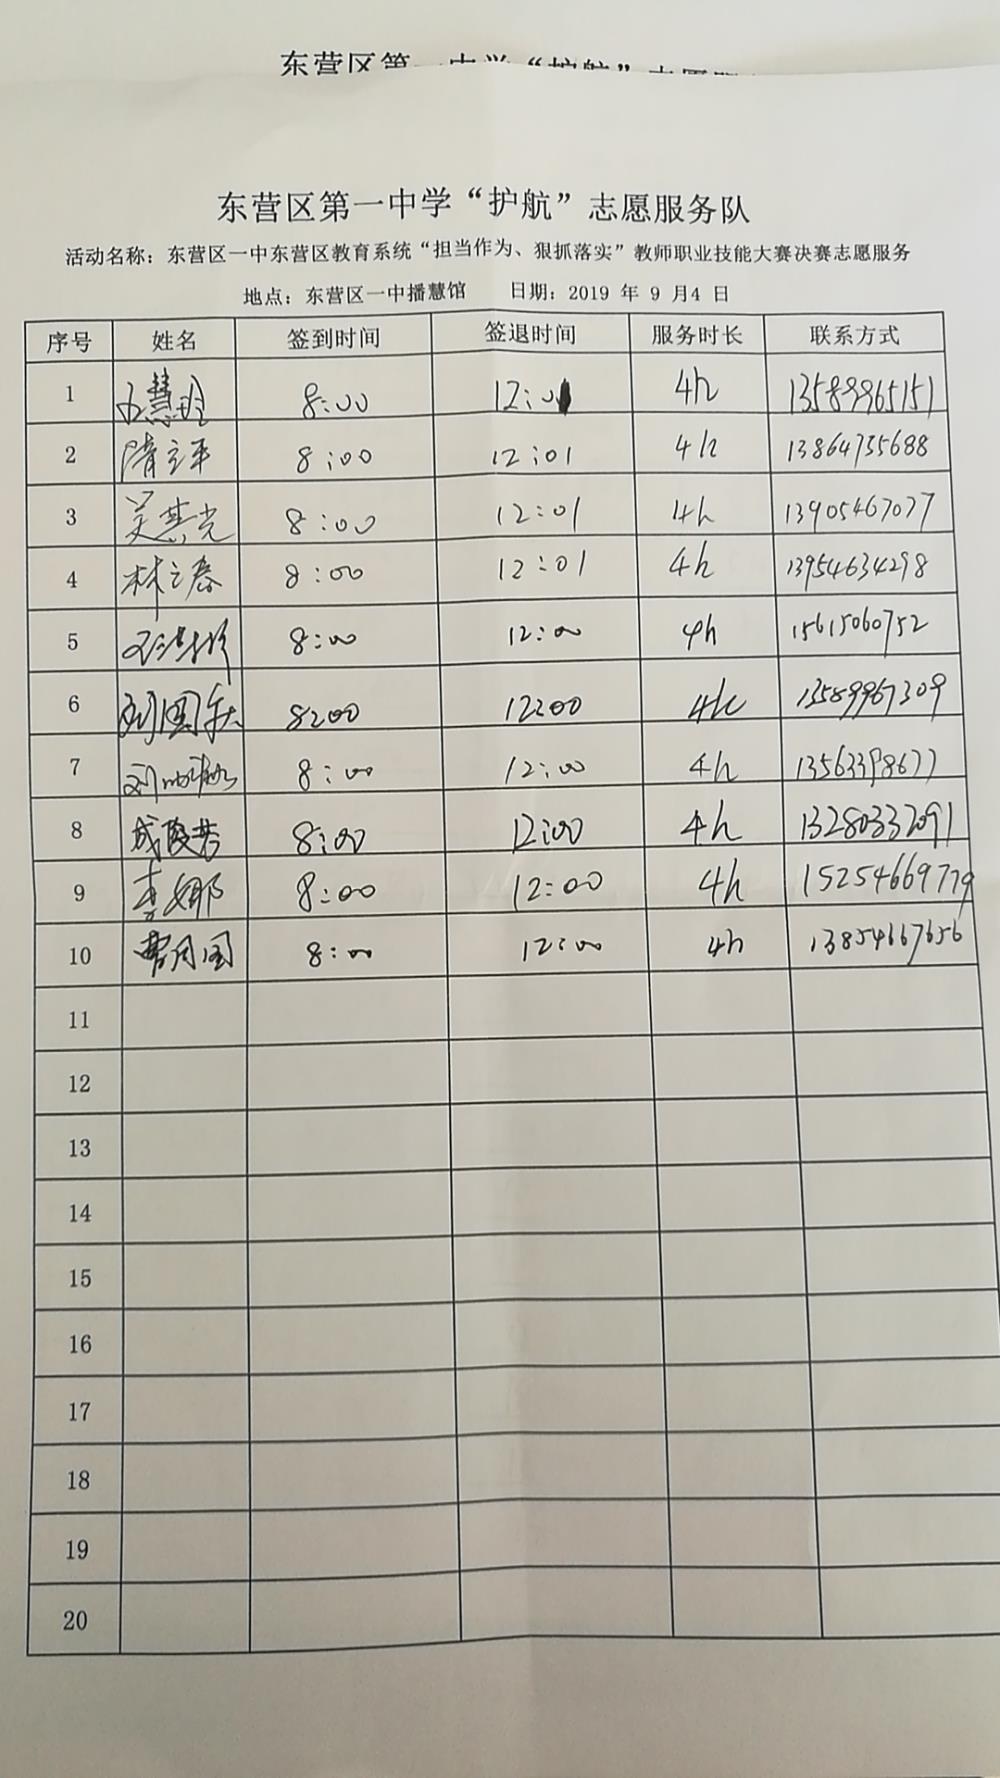 东营区第一中学“护航”志愿服
东营区第一中学“护航”志愿服务队
活动名称：东营区一中东营区教育系统“担当作为、狠抓落实”教师职业技能大赛决赛志愿服务
地点：东营区一中播慧馆 日期：2019 年 9 月4 日
序号 姓名 签到时间 签退时间 服务时长 联系方式
1 慧玲 8:00 12:01 4h 13589965151
2 隋立平 8:00 12:01 4h 13864735688
3 吴其光 8:00 12:01 4h 13905467077
4 林立春 8:00 12:01 4h 13954634298
5 8:00 12:00 4h 15615060752
6 刘国庆 8:00 12:00 4h 13589967309
7 刘 8:00 12:00 4h 13563398677
8 成霞 8:00 12:00 4h 13280332091
9 李娜 8:00 12:00 4h 15254669779
10 曹同国 8:00 12:00 4h 13854667656
11
12
13
14
15
16
17
18
19
20